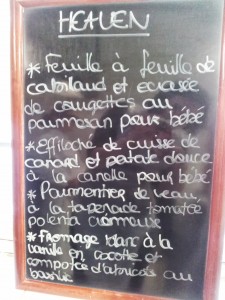 HEAVEN
* Feuille à feuille de
cabillaud et écrasée
de courgettes au
parmesan pour bébé
* Effiloché de cuisse de
canard et patate douce
à la canelle pour bébé
* Parmentier de veau,
à la tapenade tomatée
polenta crémeuse
* Fromage blanc à la
vanille en cocotte et
compotée d'abricots au
basilic